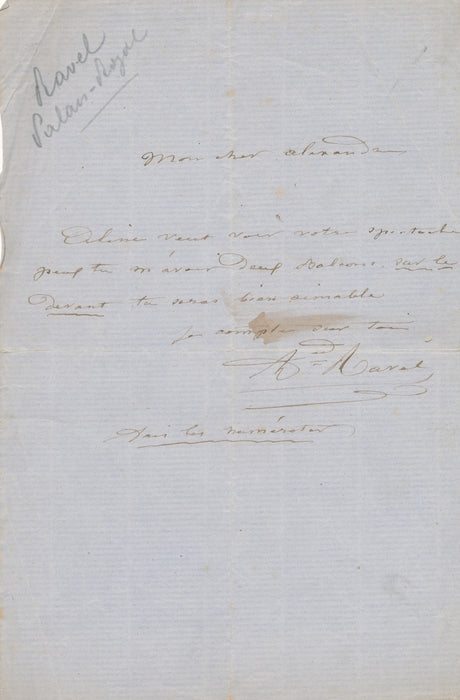 Ravel
Palais-Royal
Mon cher alexandre
veut voir votre spectacle
peux tu m'avoir Deux Balcons sur le
devant tu seras bien aimable
je compte sur toi
Aed Ravel
fais les numéroter